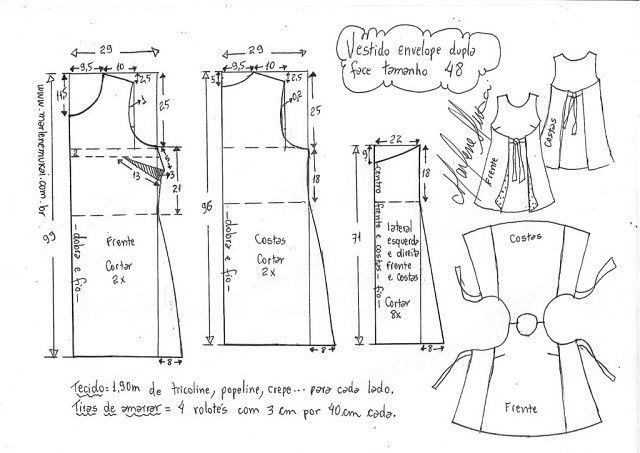 Vestido envelope dupla
face tamanho 48
www.marlenemukai.com.br
29
9,5 10
2,5
25
3
5
3
13
21
99
Frente
Cortar
2x
-dobra e fio-
8
29
9,5 10
5
2,5
25
18
96
Costas
Cortar
2x
-dobra e fio-
8
22
9
18
71
centro
frente e costas-fio-
lateral
esquerda
e direita
frente
e costas
Cortar
8x
8
Marlene Mukai
Frente
Costas
Costas
Frente
Tecido=1,90m de tricoline, popeline, crepe... para cada lado.
Tiras de amarrar = 4 rolotês com 3 cm por 40 cm cada.